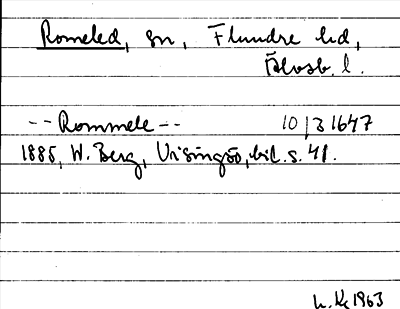 Romeled, sn, Flundre hd,
Älvsb. l.
-- Rommele -- 10/3 1647
1885, W. Berg, Visingsö, bil. s. 41.
L. K. 1963